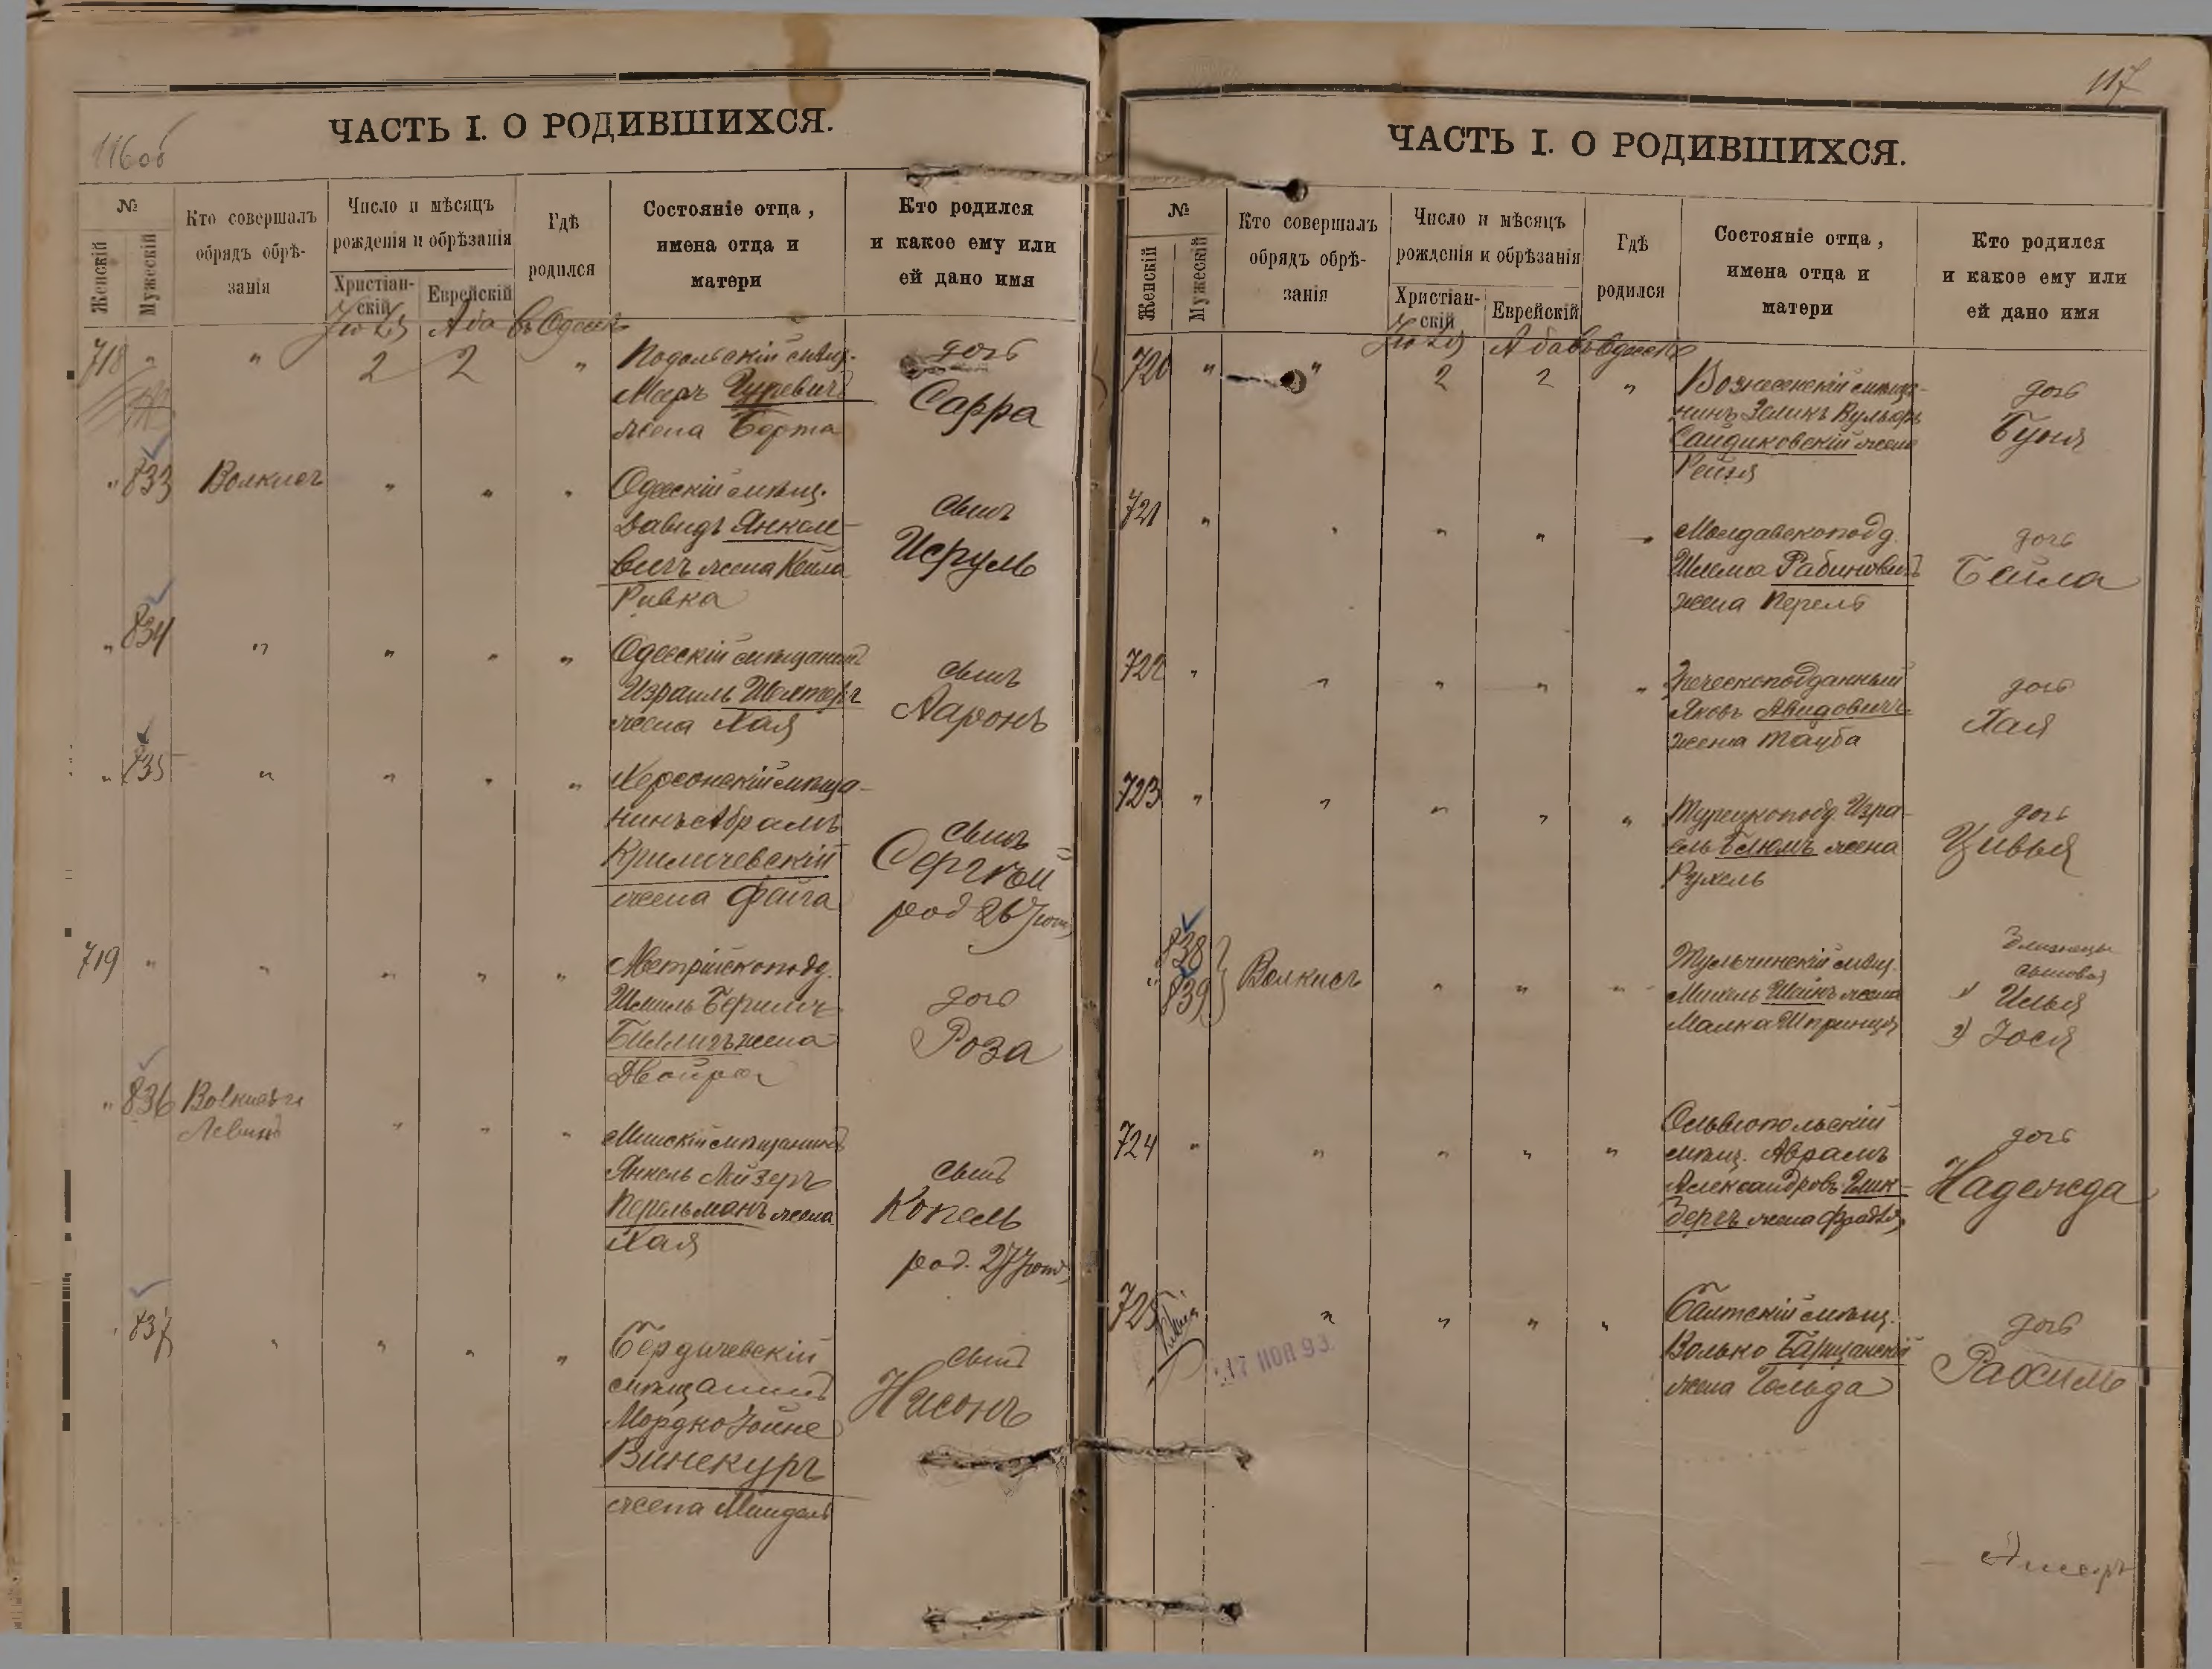 116об
ЧАСТЬ I. О РОДИВШИХСЯ.
№
Женскій
Мужескій
Кто совершалъ
обрядъ обрѣ-
занія
Число и мѣсяцъ
рожденія и обрѣзанія
Христіан-
скій
Еврейскій
Гдѣ
родился
Состояніе отца,
имена отца и
матери
Кто родился
и какое ему или
ей дано имя
Іюля Аба въ Одессѣ
718 " " 2 2 "
Подольскій мѣщ.
Мееръ Гуревичъ
жена Берта
дочь
Сарра
" 833 Волкисъ " " "
Одесскій мѣщ.
Давидъ Янкеле-
вичъ жена Кейла
Ривка
сынъ
Исруль
" 834 " " " "
Одесскій мѣщанинъ
Израиль Шехтеръ
жена Хая
сынъ
Ааронъ
" 835 " " " "
Херсонскій мѣща-
нинъ Абрамъ
Криличевскій
жена Фейга
сынъ
Сергѣй
род 26 Іюня
719 " " " " "
Австрійскоподд.
Шмиль Беришъ
Биллигъ жена
Двойра
дочь
Роза
" 836 Волкисъ и
Левинъ
" " "
Минскій мѣщанинъ
Янкель Лейзеръ
Перельманъ жена
Хая
сынъ
Копель
род. 27 Іюня
" 837 " " " "
Бердичевскій
мѣщанинъ
Мордко Іойне
Винекуръ
жена Миндель
сынъ
Нисонъ
117
ЧАСТЬ I. О РОДИВШИХСЯ.
№
Женскій
Мужескій
Кто совершалъ
обрядъ обрѣ-
занія
Число и мѣсяцъ
рожденія и обрѣзанія
Христіан-
скій
Еврейскій
Гдѣ
родился
Состояніе отца,
имена отца и
матери
Кто родился
и какое ему или
ей дано имя
Іюля Аба въ Одессѣ
720 " " 2 2 "
Вознесенскій мѣща-
нинъ Зеликъ Вульфъ
Сандиковскій жена
Рейзя
дочь
Буня
721 " " " " "
Молдавскоподд.
Шлема Рабиновичъ
жена Перель
дочь
Бейла
722 " " " " "
Греческоподданный
Яковъ Авидовичъ
жена Тауба
дочь
Хая
723 " " " " "
Турецкоподд. Изра-
ель Блюмъ жена
Рухель
дочь
Цивья
838
" 839 Волкисъ " " "
Тульчинскій мѣщ.
Михель Шейнъ жена
Малка Шпринця
Близнецы
сыновья
1) Илья
2) Іося
724 " " " " "
Ольвіопольскій
мѣщ. Абрамъ
Александровъ Глик-
бергъ жена Фрадля
дочь
Надежда
725 " " " "
17 НОЯ 93
Балтскій мѣщ.
Волько Барщанскій
жена Гольда
дочь
Рахиль